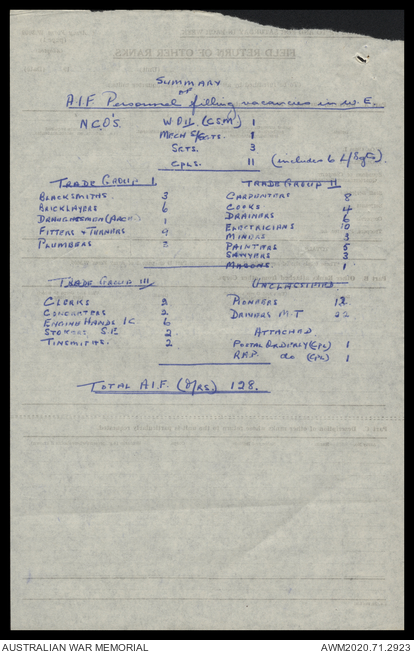 SUMMARY
OF
A.I.F. Personnel filling vacancies in W.E.
N.C.O'S. W.O II (C.S.M) 1
MECH S/SGTS. 1
SGTS. 3
CPLS. 11 (includes 6 L/Sgts)
TRADE GROUP I
BLACKSMITHS. 3
BRICKLAYERS 6
DRAUGHTSMEN (ARCH.) 1
FITTERS & TURNERS 9
PLUMBERS 3
TRADE GROUP II
CARPENTERS 8
COOKS 4
DRAINERS 6
ELECTRICIANS 10
MINERS 3
PAINTERS 5
SAWYERS 3
MASONS 1
TRADE GROUP III
CLERKS 2
CONCRETERS 2
ENGINE HANDS I.C 6
STOKERS S.P. 2
TINSMITHS. 2
UNCLASSIFIED
PIONEERS 12
DRIVERS M.T 22
ATTACHED
POSTAL ORDERLY (CPL) 1
R.A.P. do (CPL) 1
TOTAL A.I.F. (O/RS.) 128.
FIELD RETURN OF OTHER RANKS
AUSTRALIAN WAR MEMORIAL
AWM2020.71.2923